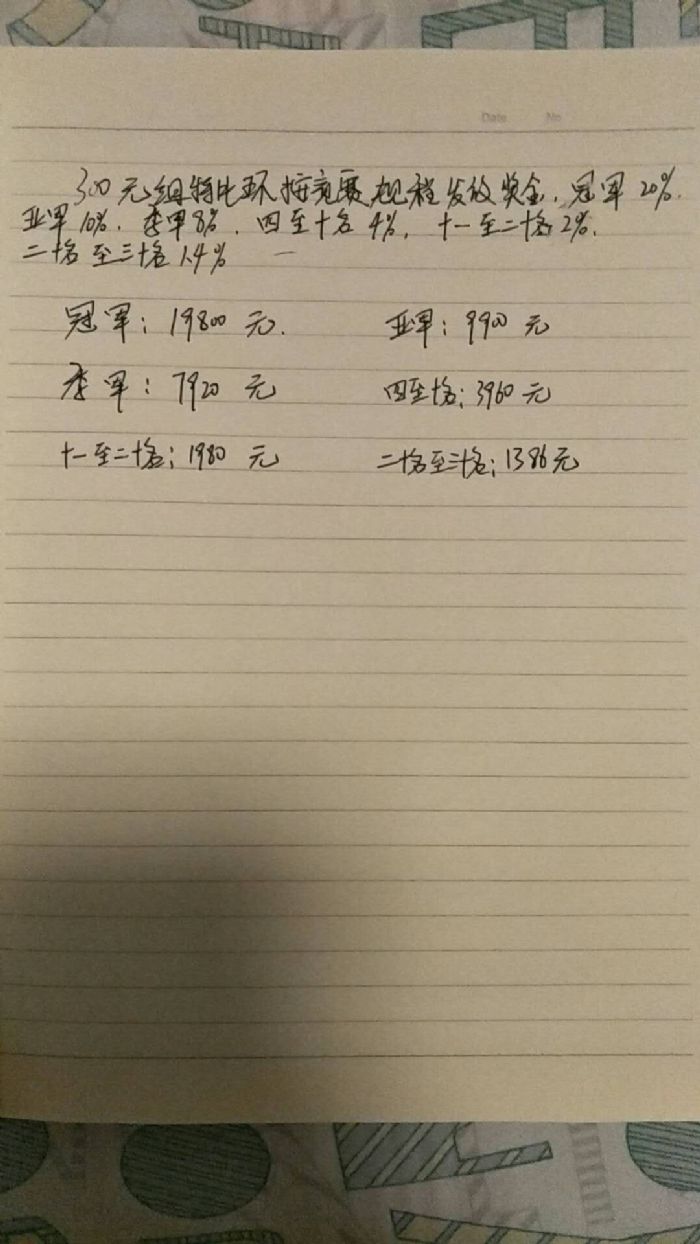 Date No
300元组特比环按竞赛规程发放奖金，冠军20%.
亚军10%. 季军8%. 四至十名4%, 十一至二十名2%.
二十名至三十名1.4%
冠军：19800元. 亚军：9900元
季军：7920元 四至十名；3960元
十一至二十名；1980元 二十名至三十名；1386元